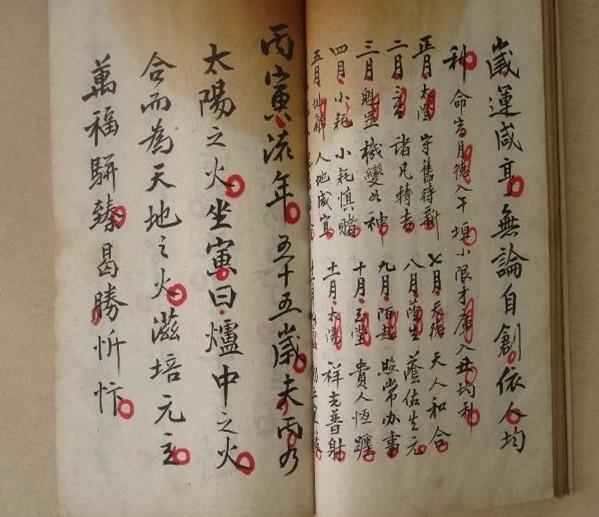 歲運咸亨無論自創依人均
利命宮月德入午垣小限才庫入垂均利
正月太陰守舊待新 七月天德天人和合
二月 諸凡轉吉 八月蔭生蔭佑生元
三月魁罡機變如神 九月陌越照常办事
四月小耗小耗慎賭 十月玉堂貴人恆躔
五月 解人地咸宜 十一月太陽祥光普射
丙寅流年五十五歲夫丙乃
太陽之火坐寅曰爐中之火
合而為天地之火滋培元立
萬福駢臻曷勝忻忭